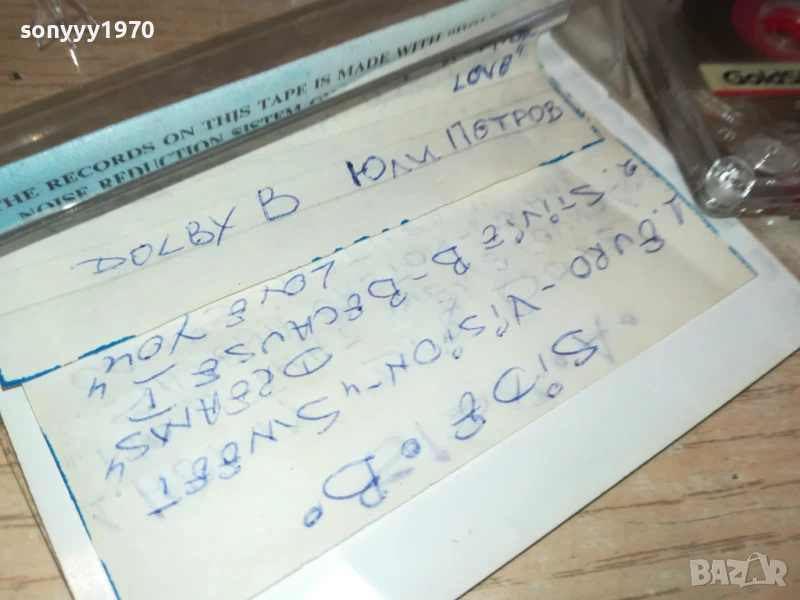 sonyyy1970
THE RECORDS ON THIS TAPE IS MADE WITH
NOISE REDUCTION SISTEM
LOVE"
ДОЛБУ В ЮЛИ ПЕТРОВ
SIDE "B"
1. EURO-VISION-"SWEET
DREAMS"
2. STIVIE B-BECAUSE I
LOVE YOU"
GoldS
BAZAR